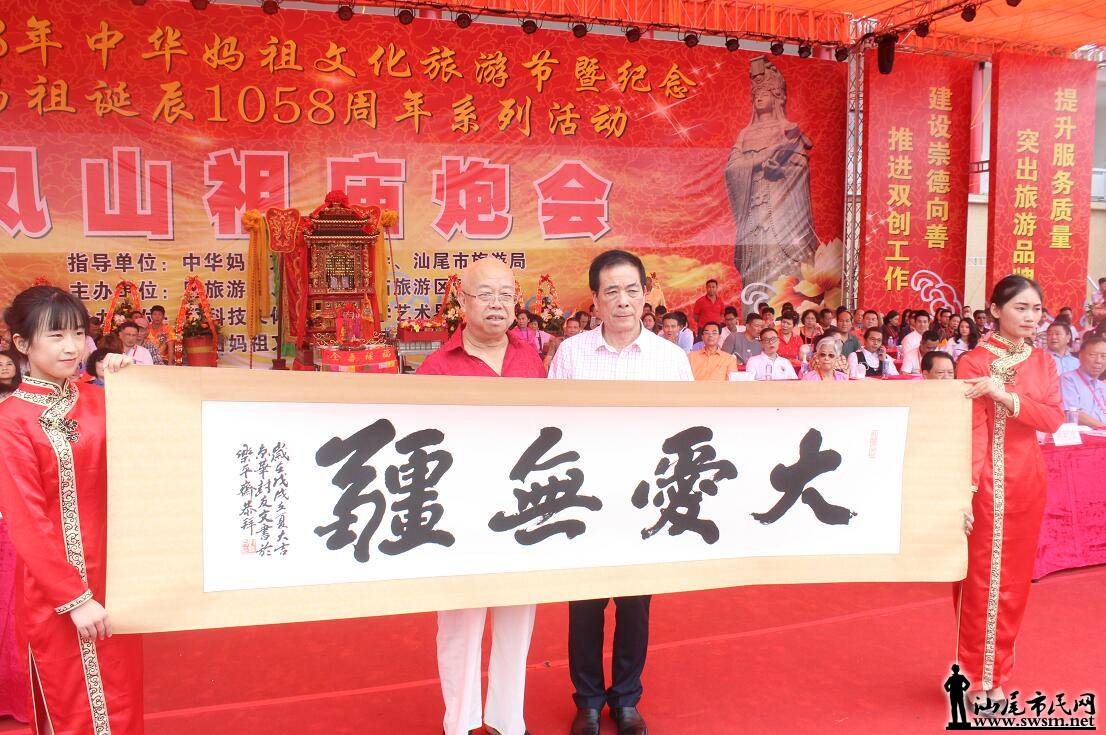 8年中华妈祖文化旅游节暨纪念
妈祖诞辰1058周年系列活动
凤山祖庙炮会
指导单位：中华妈
、汕尾市旅游局
主办单位：
旅游
旅游区
科技
艺术
妈祖文
建设崇德向善
推进双创工作
提升服务质量
突出旅游品牌
福禄善全
大愛無疆
歲在戊戌立夏大吉
京華封友文書於
樂平齋恭拜
汕尾市民网
www.swsm.net